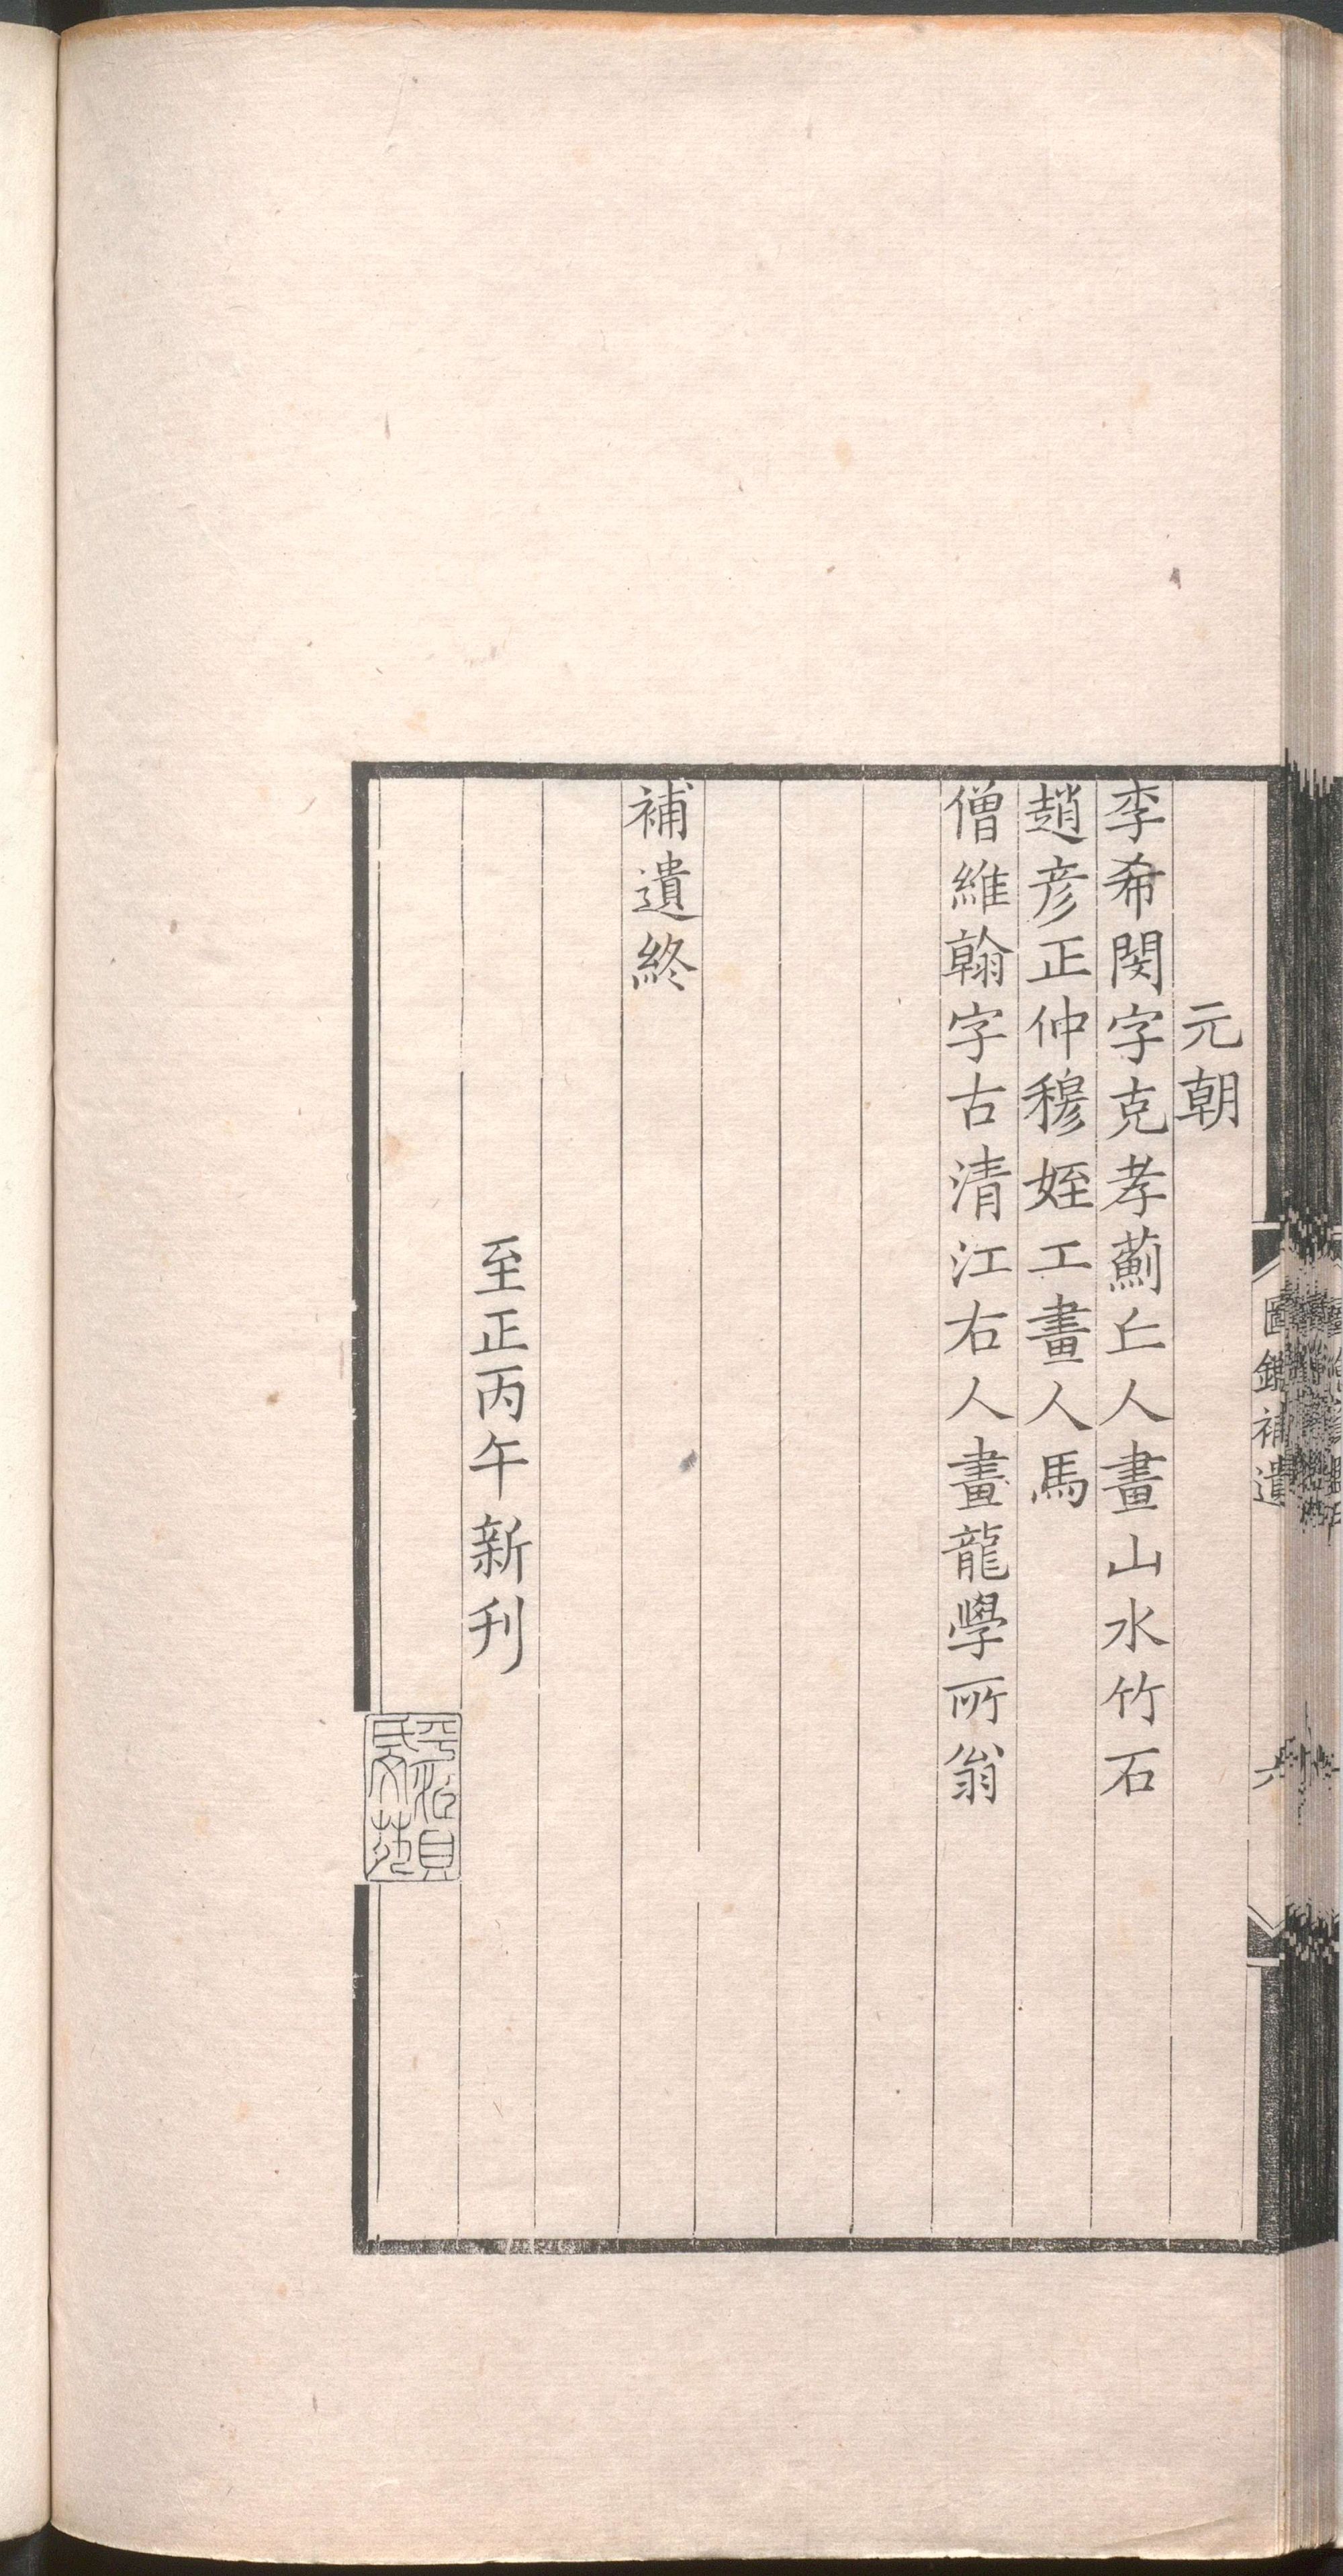 元朝
李希閔字克孝薊丘人畫山水竹石
趙彦正仲穆姪工畫人馬
僧維翰字古清江右人畫龍學所翁
補遺終
至正丙午新刊
圖繪補遺
六